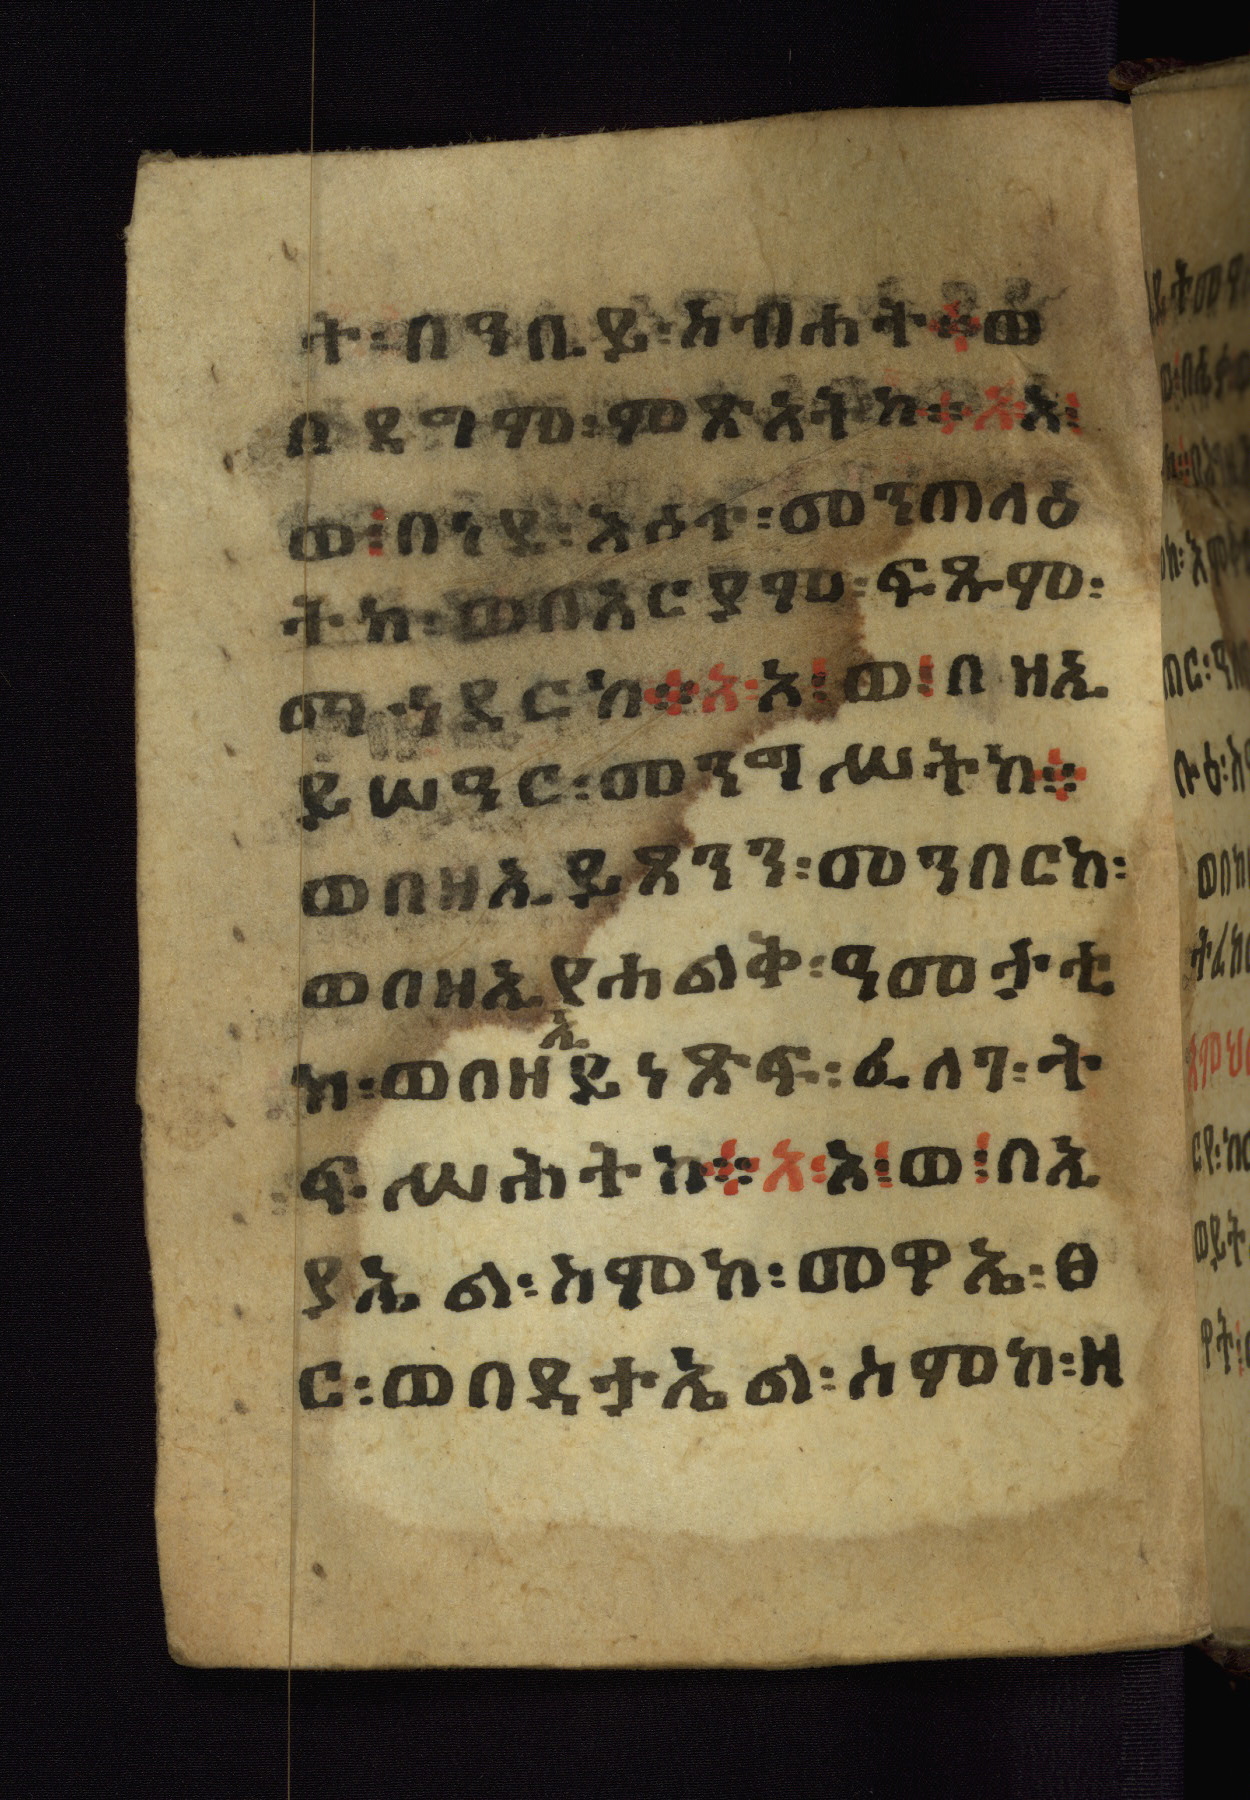 ት፡ በዓቢይ፡ ስብሐት። ወ
በዳግም፡ ምጽአትከ። እ፡ እ፡
ወ፡ በነደ፡ እሳተ፡ መንጦላዕ
ትከ፡ ወበአርያም፡ ፍጹም፡
ማኅደርከ። እ፡ እ፡ ወ፡ በዘኢ
ይሠዓር፡ መንግሥትከ።
ወበዘኢይጸንን፡ መንበርከ፡
ወበዘኢየሐልቅ፡ ዓመታቲ
ከ፡ ወበዘኢይነጽፍ፡ ፈለገ፡ ት
ፍሥሕትከ። እ፡ እ፡ ወ፡ በኢ
ያኤል፡ ስምከ፡ መዋኤ፡ ፀ
ር፡ ወበዳታኤል፡ ስምከ፡ ዘ